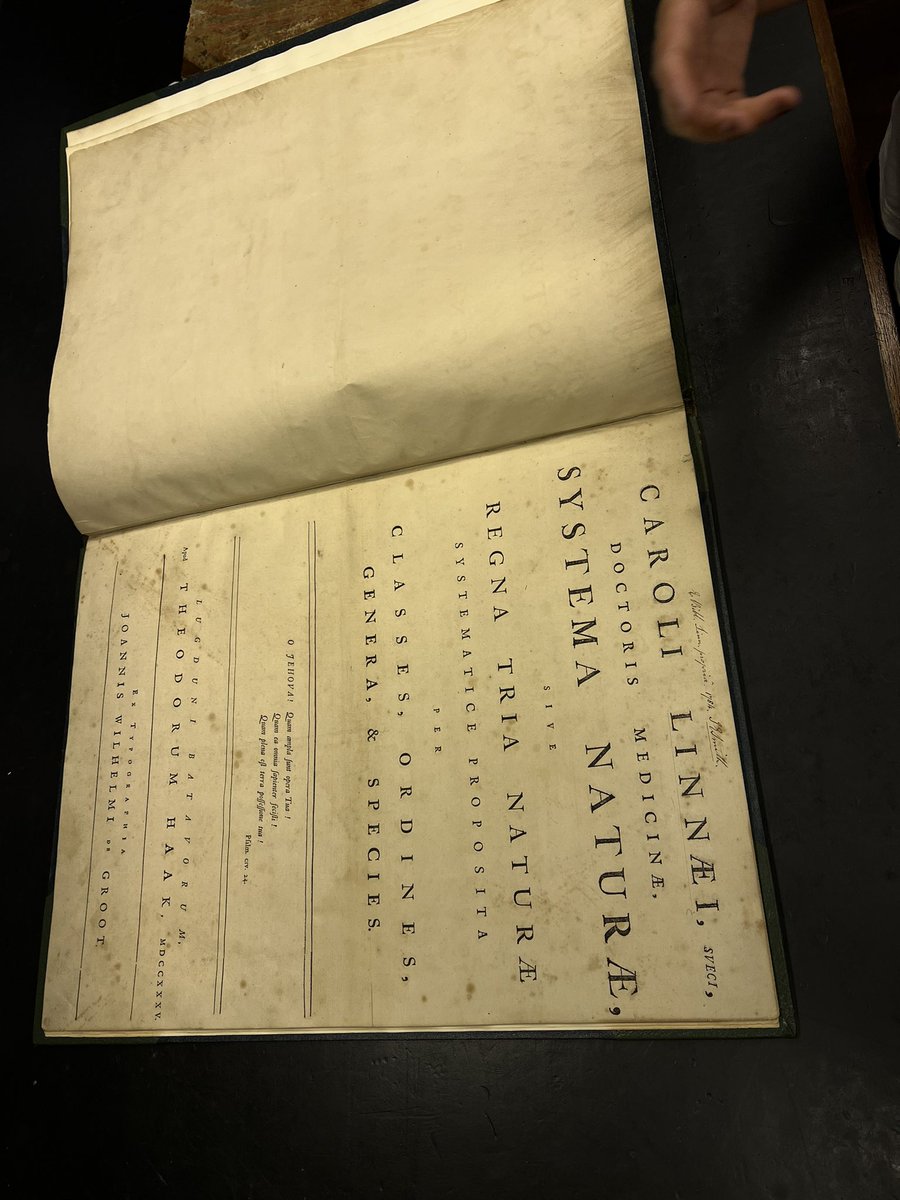 E Bibl. Linn. propriâ 1784. JESmith.
CAROLI LINNÆI, SVECI,
DOCTORIS MEDICINÆ,
SYSTEMA NATURÆ,
SIVE
REGNA TRIA NATURÆ
SYSTEMATICE PROPOSITA
PER
CLASSES, ORDINES,
GENERA, & SPECIES.
O JEHOVA! Quam ampla sunt opera Tua!
Quam ea omnia sapienter fecisti!
Quam plena est terra possessione tua!
Psalm. CIV. 24.
LUGDUNI BATAVORUM,
Apud THEODORUM HAAK, MDCCXXXV.
EX TYPOGRAPHIA
JOANNIS WILHELMI DE GROOT.